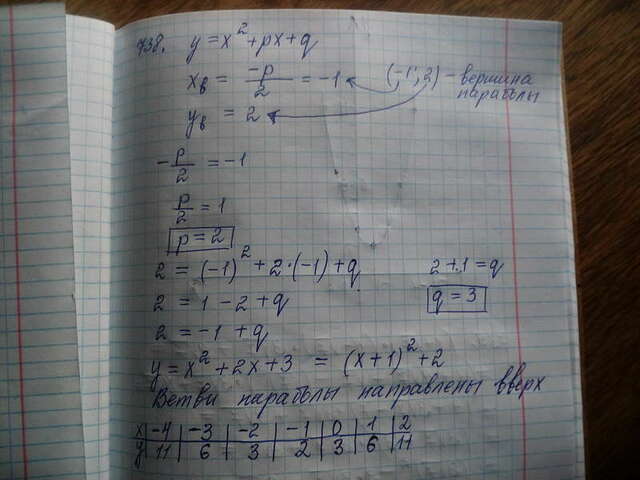 738. y = x² + px + q
xв = -p/2 = -1 (-1; 2) - вершина параболы
yв = 2
-p/2 = -1
p/2 = 1
p = 2
2 = (-1)² + 2·(-1) + q 2 + 1 = q
2 = 1 - 2 + q q = 3
2 = -1 + q
y = x² + 2x + 3 = (x+1)² + 2
Ветви параболы направлены вверх
x | -4 | -3 | -2 | -1 | 0 | 1 | 2
y | 11 | 6 | 3 | 2 | 3 | 6 | 11